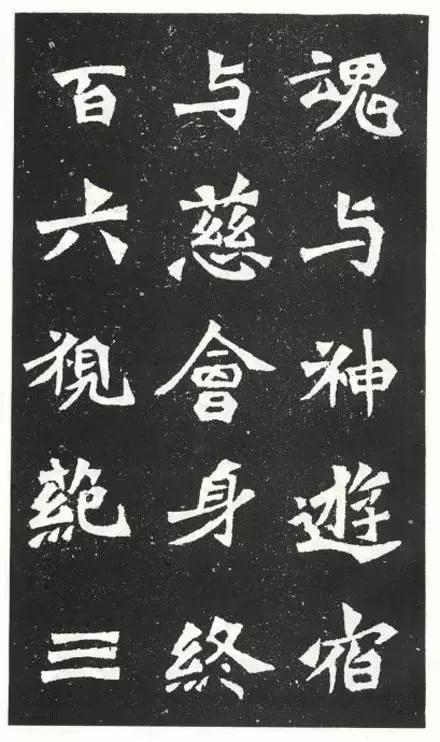 魂与神遊宿
与慈會身終
百六視範三